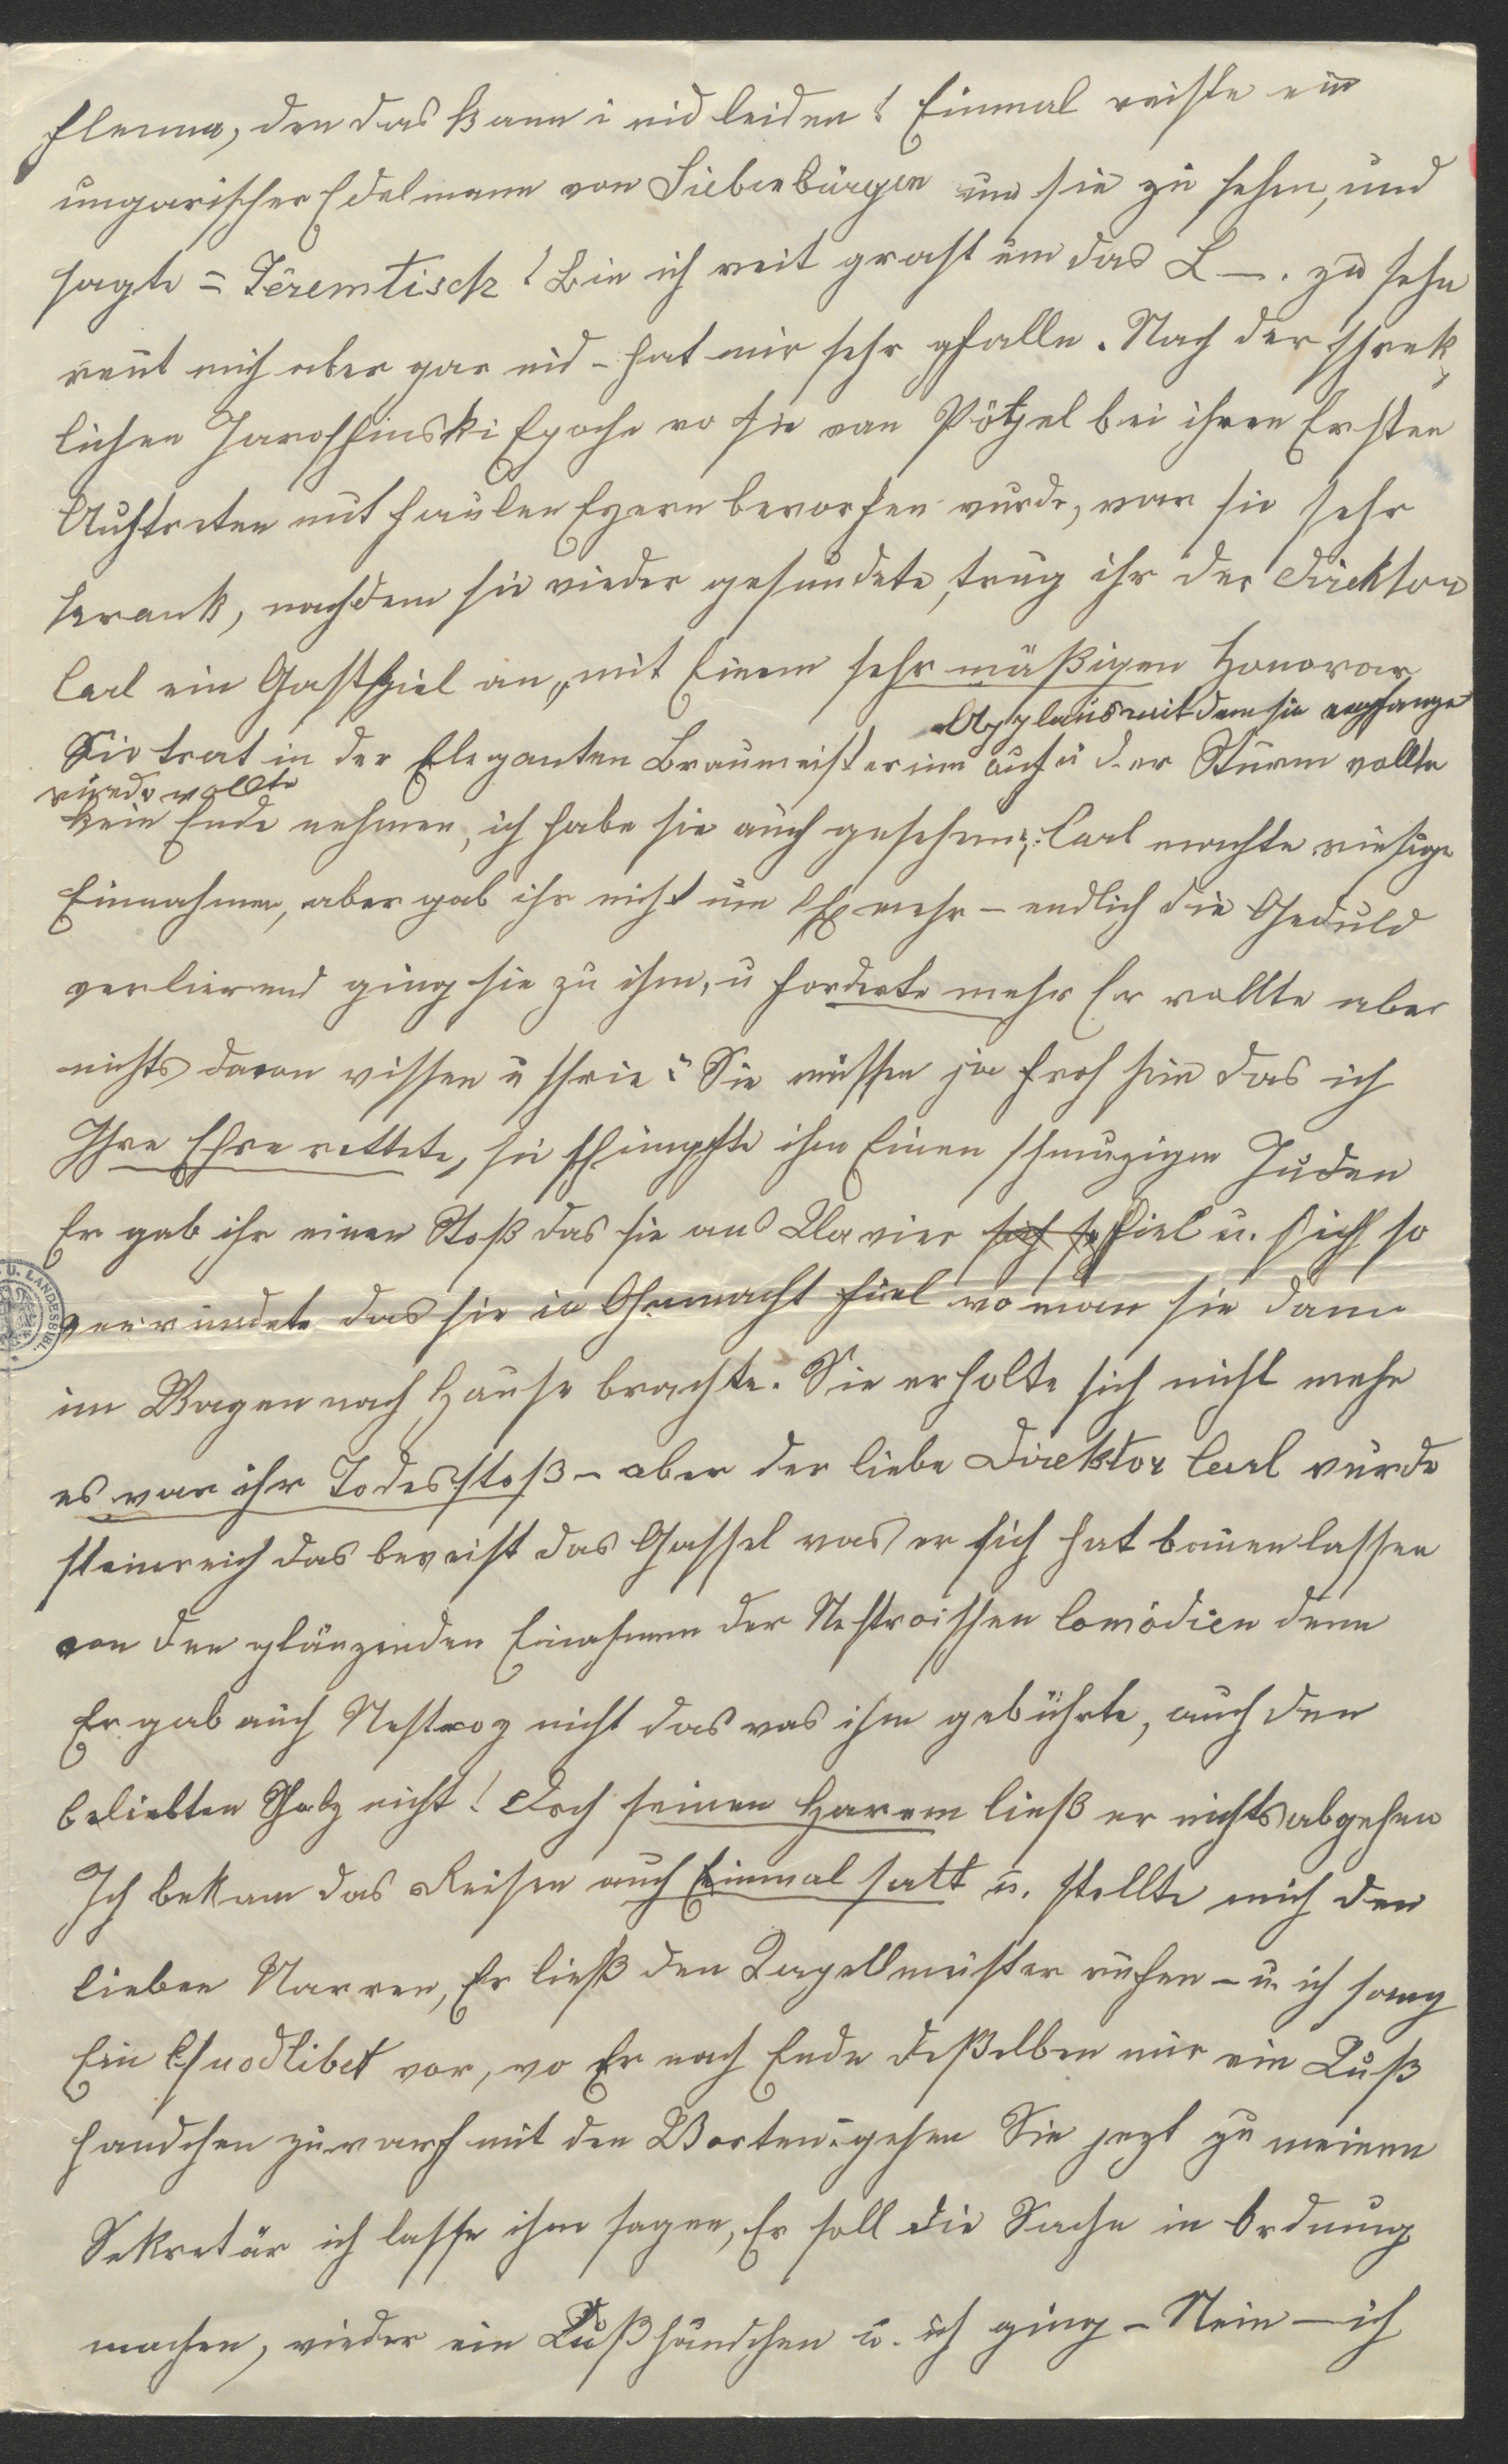 flenna, den das kann i nid leiden! Einmal reiste ein
ungarischer Edelmann von Siebenbürgen um sie zu sehen, und
sagte = Teremtisch! Bin ich weit grast um das L—. zu sehn
reut mich aber gar nid – hat mir sehr gfalle. Nach der schrek-
lichen Jaroschinski Epoche wo sie von Pötzel bei ihren Ersten
Auftreten mit faulen Eyern beworfen wurde, war sie sehr
krank, nachdem sie wieder gesundete, trug ihr der Direktor
Carl ein Gastspiel an „mit Einem sehr mäßigen Honorar
Applaus mit dem sie empfange
Sie trat in der Eleganten Braumeisterinn auf u der Sturm wollte
wurde wollte
kein Ende nehmen, ich habe sie auch gesehen; Carl machte riesige
Einnahmen, aber gab ihr nicht um mehr – endlich die Geduld
verlierend ging sie zu ihm, u forderte mehr Er wollte aber
nichts davon wissen u schrie: Sie müssen ja froh sein das ich
Ihre Ehre rettete, sie schimpfte ihn Einen schmuzigen Juden
Er gab ihr einen Stoß das sie ans Clavier sich so fiel u. sich so
verwundete das sie in Ohnmacht fiel wo man sie dann
im Wagen nach Hause brachte. Sie erholte sich nicht mehr
es war ihr Todesstoß – aber der liebe Direktor Carl wurde
steinreich das beweist das Gassel was er sich hat bauen lassen
von den glänzenden Einahmen der Nestroischen Comödien denn
Er gab auch Nestroy nicht das was ihm gebührte, auch den
beliebten Scholz nicht! Doch seinen Harem ließ er nichts abgehen
Ich bekam das Reisen auch Einmal satt u. stellte mich den
lieben Narren, Er ließ den Kapellmeister rufen – u. ich sang
Ein Quodlibet vor, wo Er nach Ende deßelben mir ein Kuß
handchen zuwarf mit den Worten: gehen Sie jezt zu meinen
Sekretär ich lasse ihm sagen, Er soll die Sache in Ordnung
machen, wieder ein Kußhändchen u. ich ging – Nein – ich